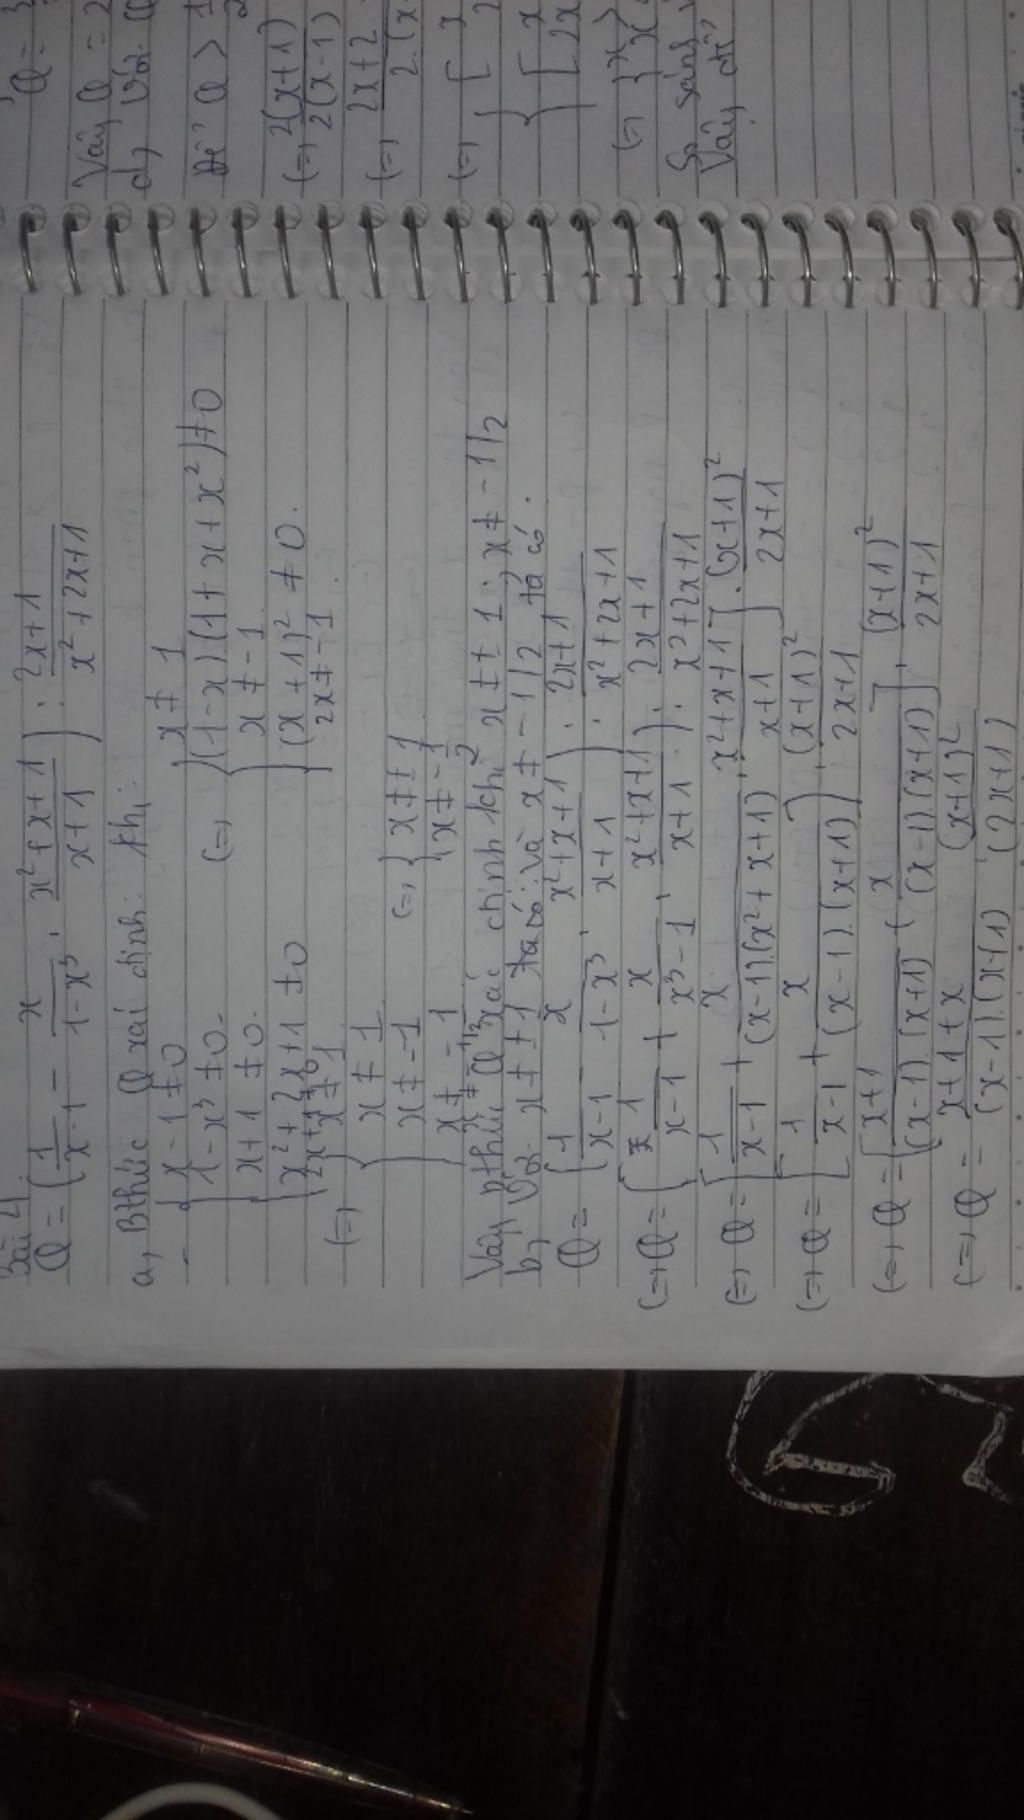 Bài 4.
Q = (1/(x-1) - x/(1-x³) . (x²+x+1)/(x+1)) : (2x+1)/(x²+2x+1)
a, Bthức Q xác định khi:
{ x-1 ≠ 0
1-x³ ≠ 0
x+1 ≠ 0
x²+2x+1 ≠ 0
2x+1 ≠ 0
(=) { x ≠ 1
(1-x)(1+x+x²) ≠ 0
x ≠ -1
(x+1)² ≠ 0.
2x ≠ -1
(=) { x ≠ 1
x ≠ 1
x ≠ -1
x ≠ -1
x ≠ -1/2
(=) { x ≠ ± 1
x ≠ -1/2
Vậy pthức Q xác định khi x ≠ ± 1 ; x ≠ -1/2
b, Với x ≠ ± 1 và x ≠ -1/2 ta có:
Q = (1/(x-1) - x/(1-x³) . (x²+x+1)/(x+1)) : (2x+1)/(x²+2x+1)
(=) Q = (1/(x-1) + x/(x³-1) . (x²+x+1)/(x+1)) : (2x+1)/(x²+2x+1)
(=) Q = [1/(x-1) + x/((x-1).(x²+x+1)) . (x²+x+1)/(x+1)] . (x+1)²/(2x+1)
(=) Q = [1/(x-1) + x/((x-1).(x+1))] . (x+1)²/(2x+1)
(=) Q = [(x+1)/((x-1).(x+1)) + x/((x-1).(x+1))] . (x+1)²/(2x+1)
(=) Q = (x+1+x)/((x-1).(x+1)) . (x+1)²/(2x+1)
Q =
Vậy Q = 2
d, Với Q
Để Q > 1
(=) 2(x+1)/2(x-1)
(=) 2x+2
2.(x
(=) { [ x
[ x
2x
(=) { x
So sánh
Vậy để